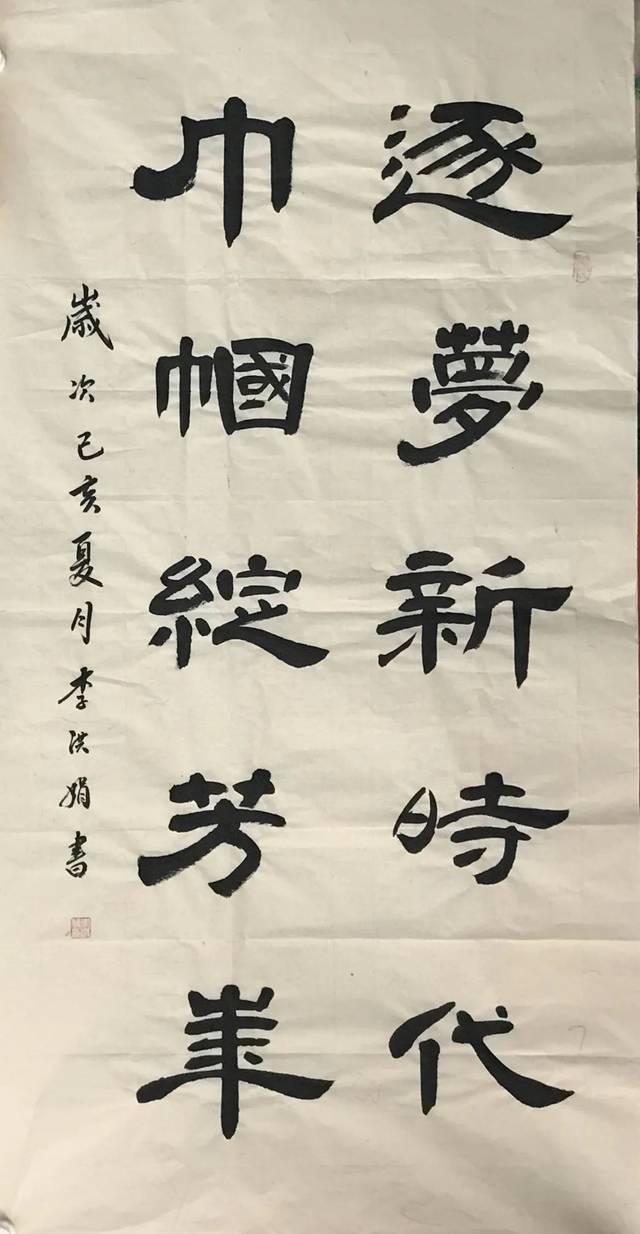 逐夢新時代
巾幗綻芳華
歲次己亥夏月李洪娟書